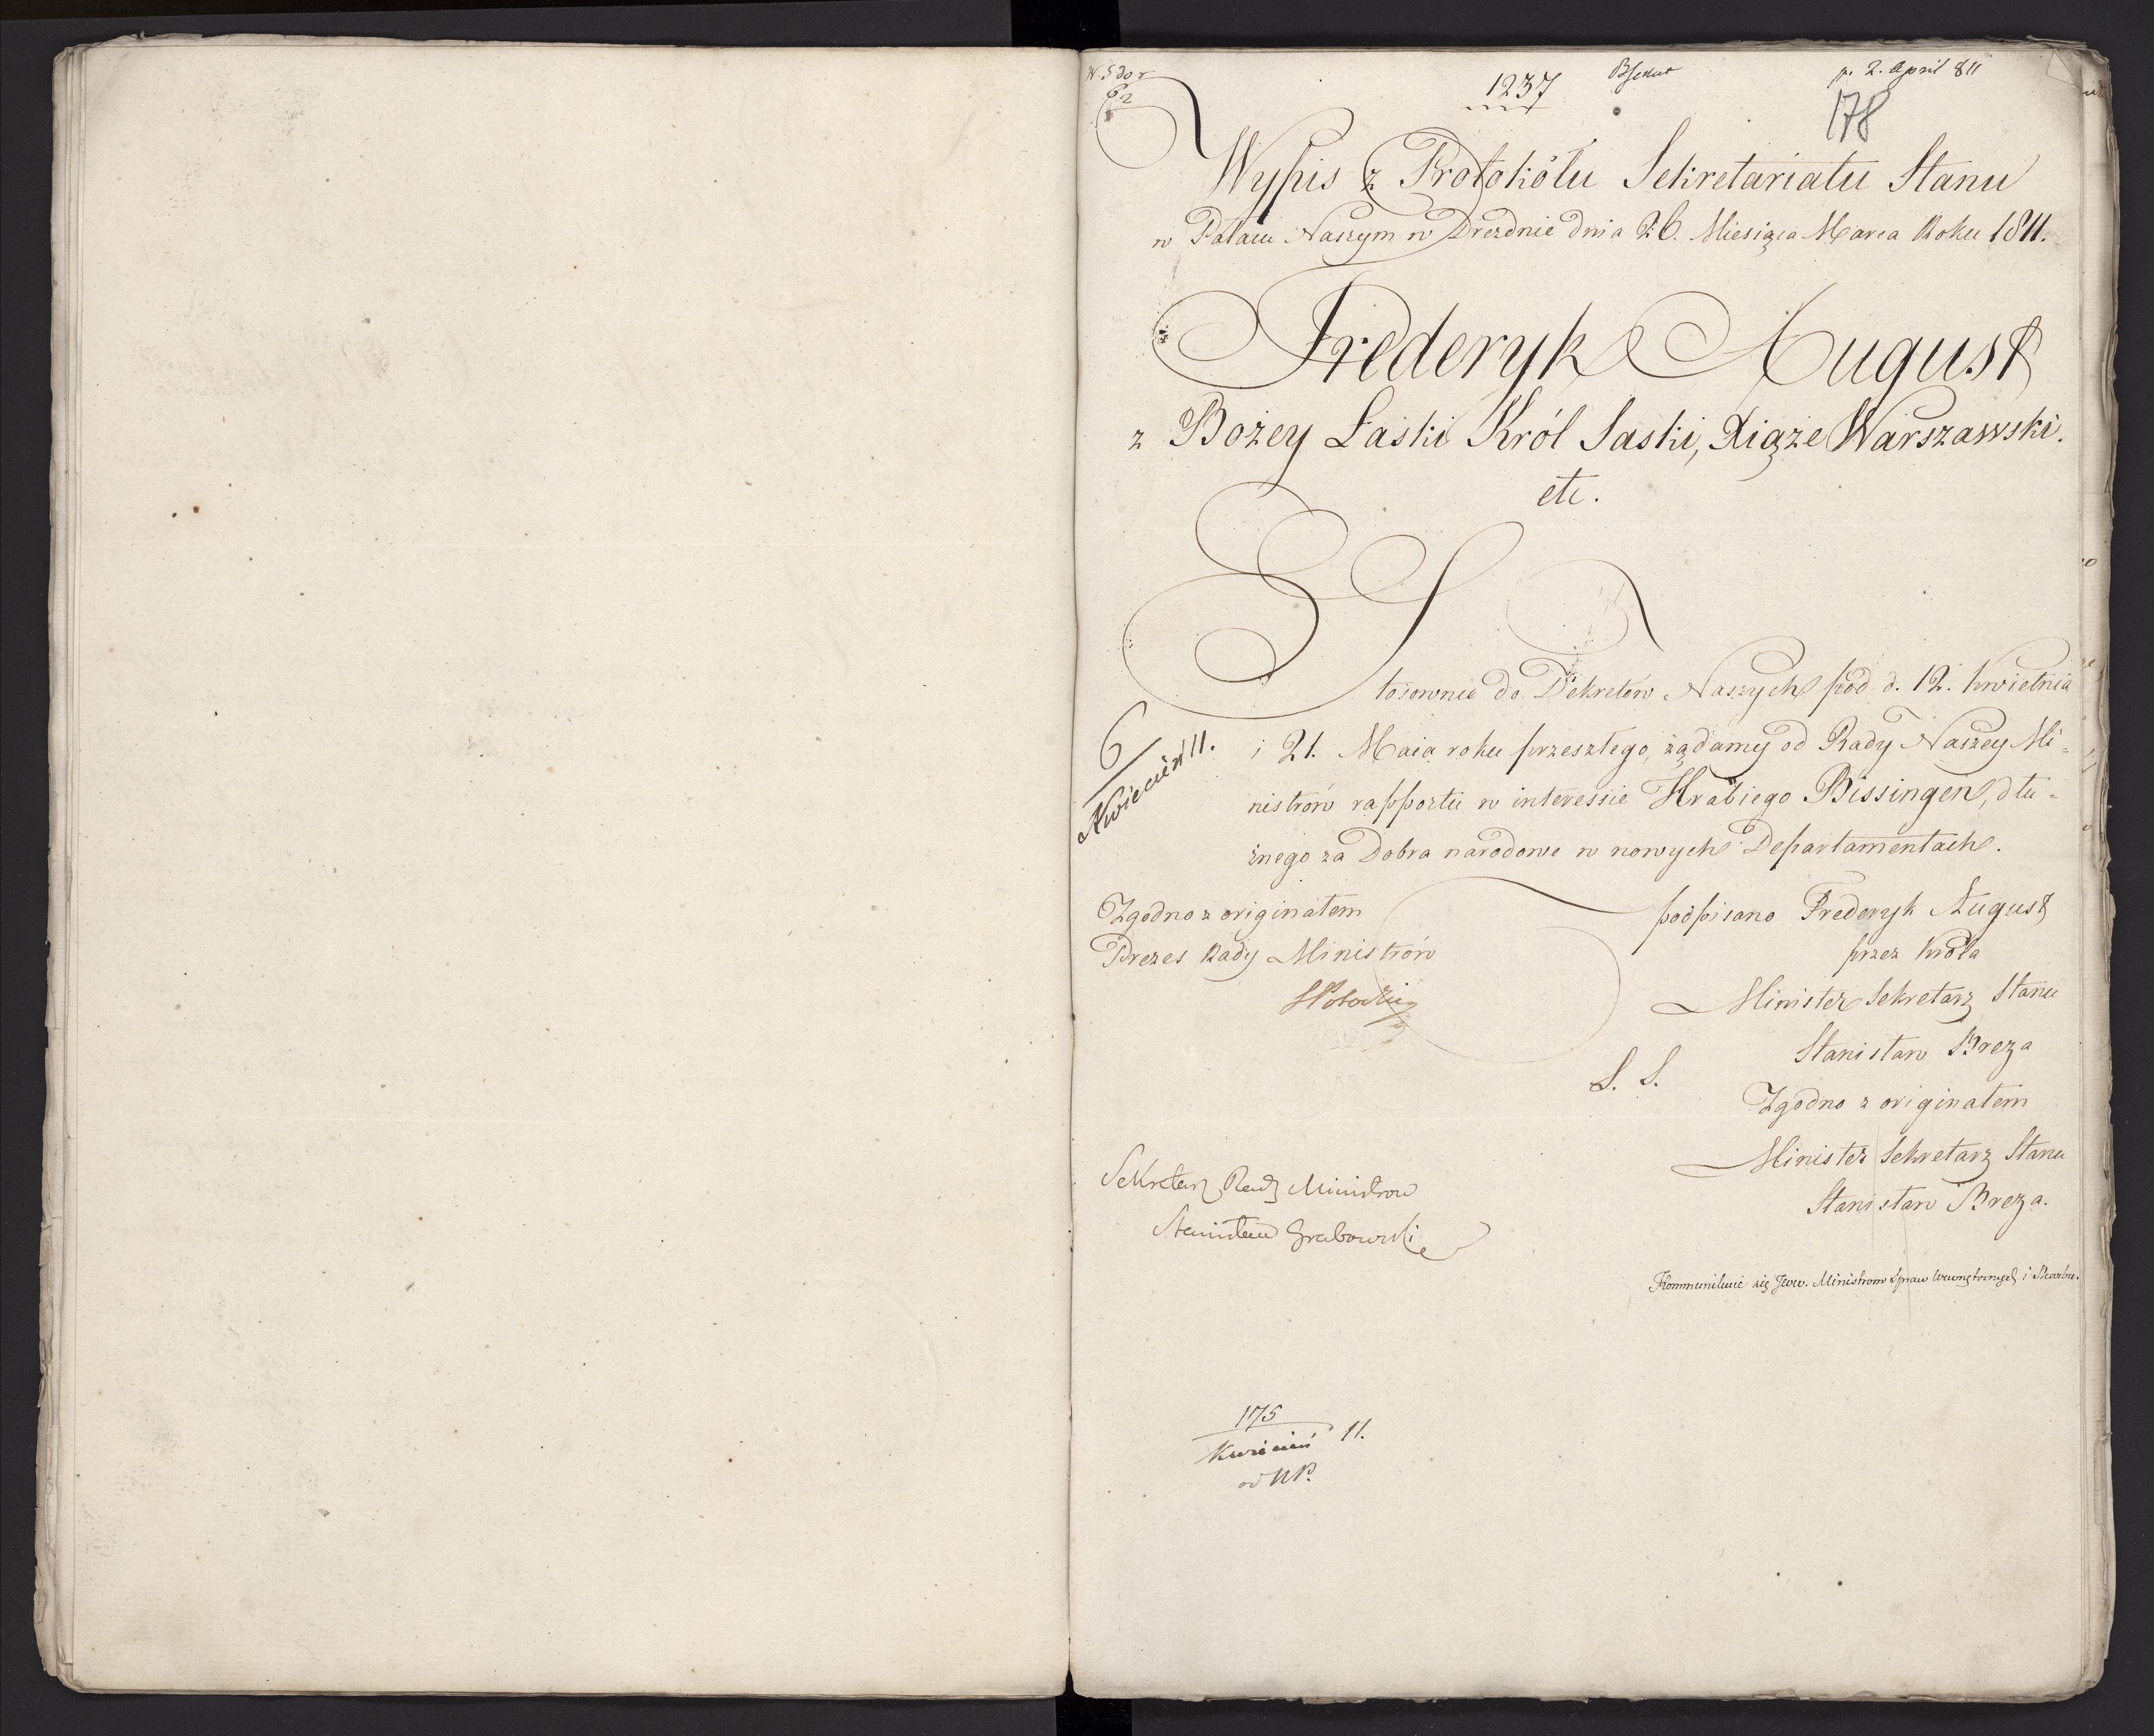 1237
p. 2. April 811
178
Wypis z Protokółu Sekretariatu Stanu
w Pałacu Naszym w Dreznie dnia 26. Miesiąca Marca Roku 1811.
Frederyk August
z Bożey Łaski Król Saski, Xiąże Warszawski.
etc.
Stosownie do Dekretów Naszych pod d. 12. kwietnia
i 21. Maia roku przeszłego, żądamy od Rady Naszey Mi=
nistrów rapportu w interessie Hrabiego Bissingen, dłu=
żnego za Dobra narodowe w nowych Departamentach.
6
Kwiecień 11.
Zgodno z originałem
Prezes Rady Ministrów
SPotocki
podpisano Frederyk August
przez Króla
Minister Sekretarz Stanu
Stanisław Breza
S. S.
Zgodno z originałem
Minister Sekretarz Stanu
Stanisław Breza.
Sekretarz Rady Ministrow
Stanisław Grabowski
Kommunikuie się Jww. Ministrom Spraw Wewnętrznych i Skarbu.
175
Kwiecień 11.